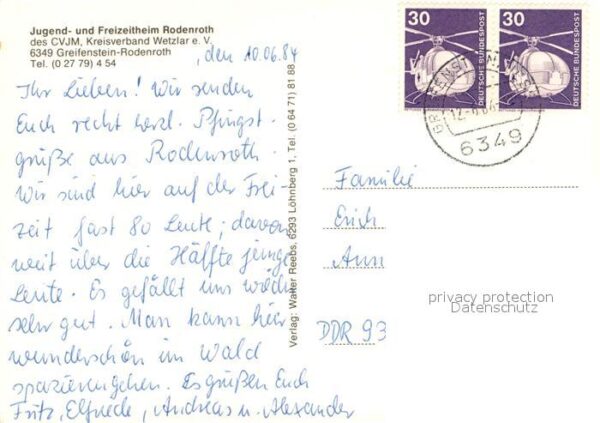 Jugend- und Freizeitheim Rodenroth
des CVJM, Kreisverband Wetzlar e. V.
6349 Greifenstein-Rodenroth
Tel. (0 27 79) 4 54
den 10.06.84
Ihr Lieben! Wir senden
Euch recht herzl. Pfingst-
grüße aus Rodenroth.
Wir sind hier auf der Frei-
zeit fast 80 Leute; davon
weit über die Hälfte junge
Leute. Es gefällt uns
sehr gut. Man kann hier
wunderschön im Wald
spazierengehen. Es grüßen Euch
Fritz, Elfriede, Andreas u. Alexander
Verlag: Walter Reebs, 6293 Löhnberg 1, Tel. (0 64 71) 81 88
30
DEUTSCHE BUNDESPOST
30
DEUTSCHE BUNDESPOST
6349
Familie
Erich
Ann
DDR 93
privacy protection
Datenschutz